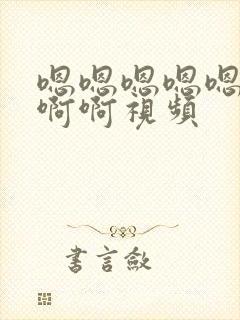 嗯嗯嗯嗯嗯
啊啊視頻
書言敘